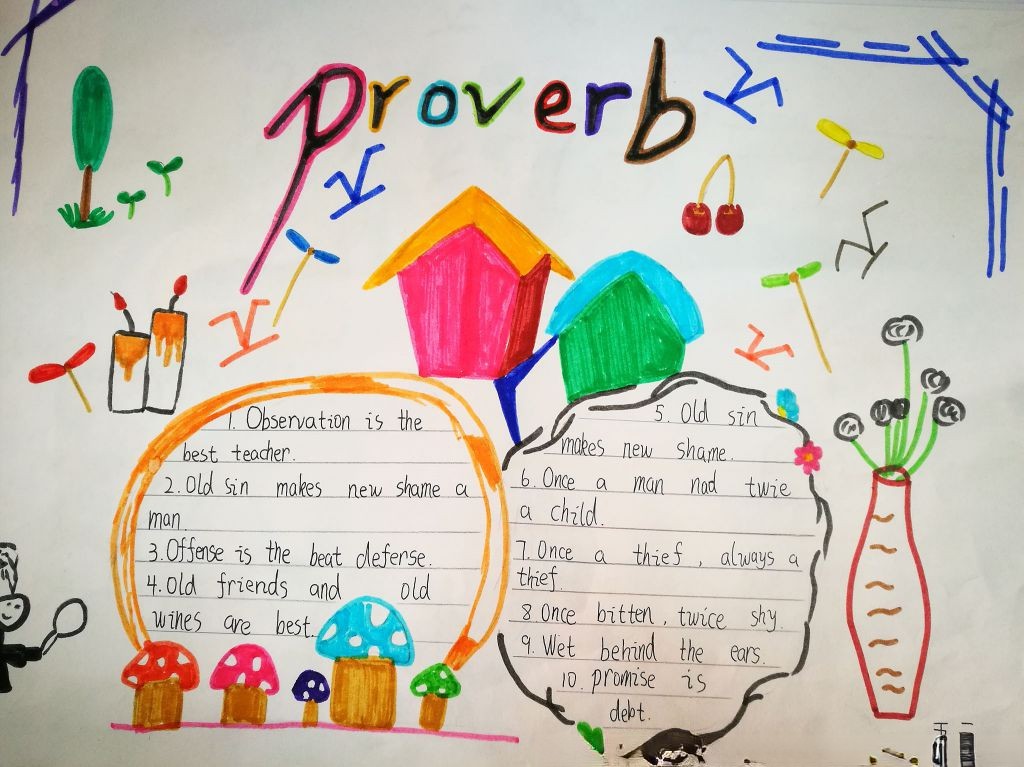 Proverb
1. Observation is the
best teacher.
2. Old sin makes new shame a
man.
3. Offense is the beat defense.
4. Old friends and old
wines are best.
5. Old sin
makes new shame.
6. Once a man nad twie
a child.
7. Once a thief, always a
thief.
8 Once bitten, twice shy.
9. Wet behind the ears.
10. promise is
debt.